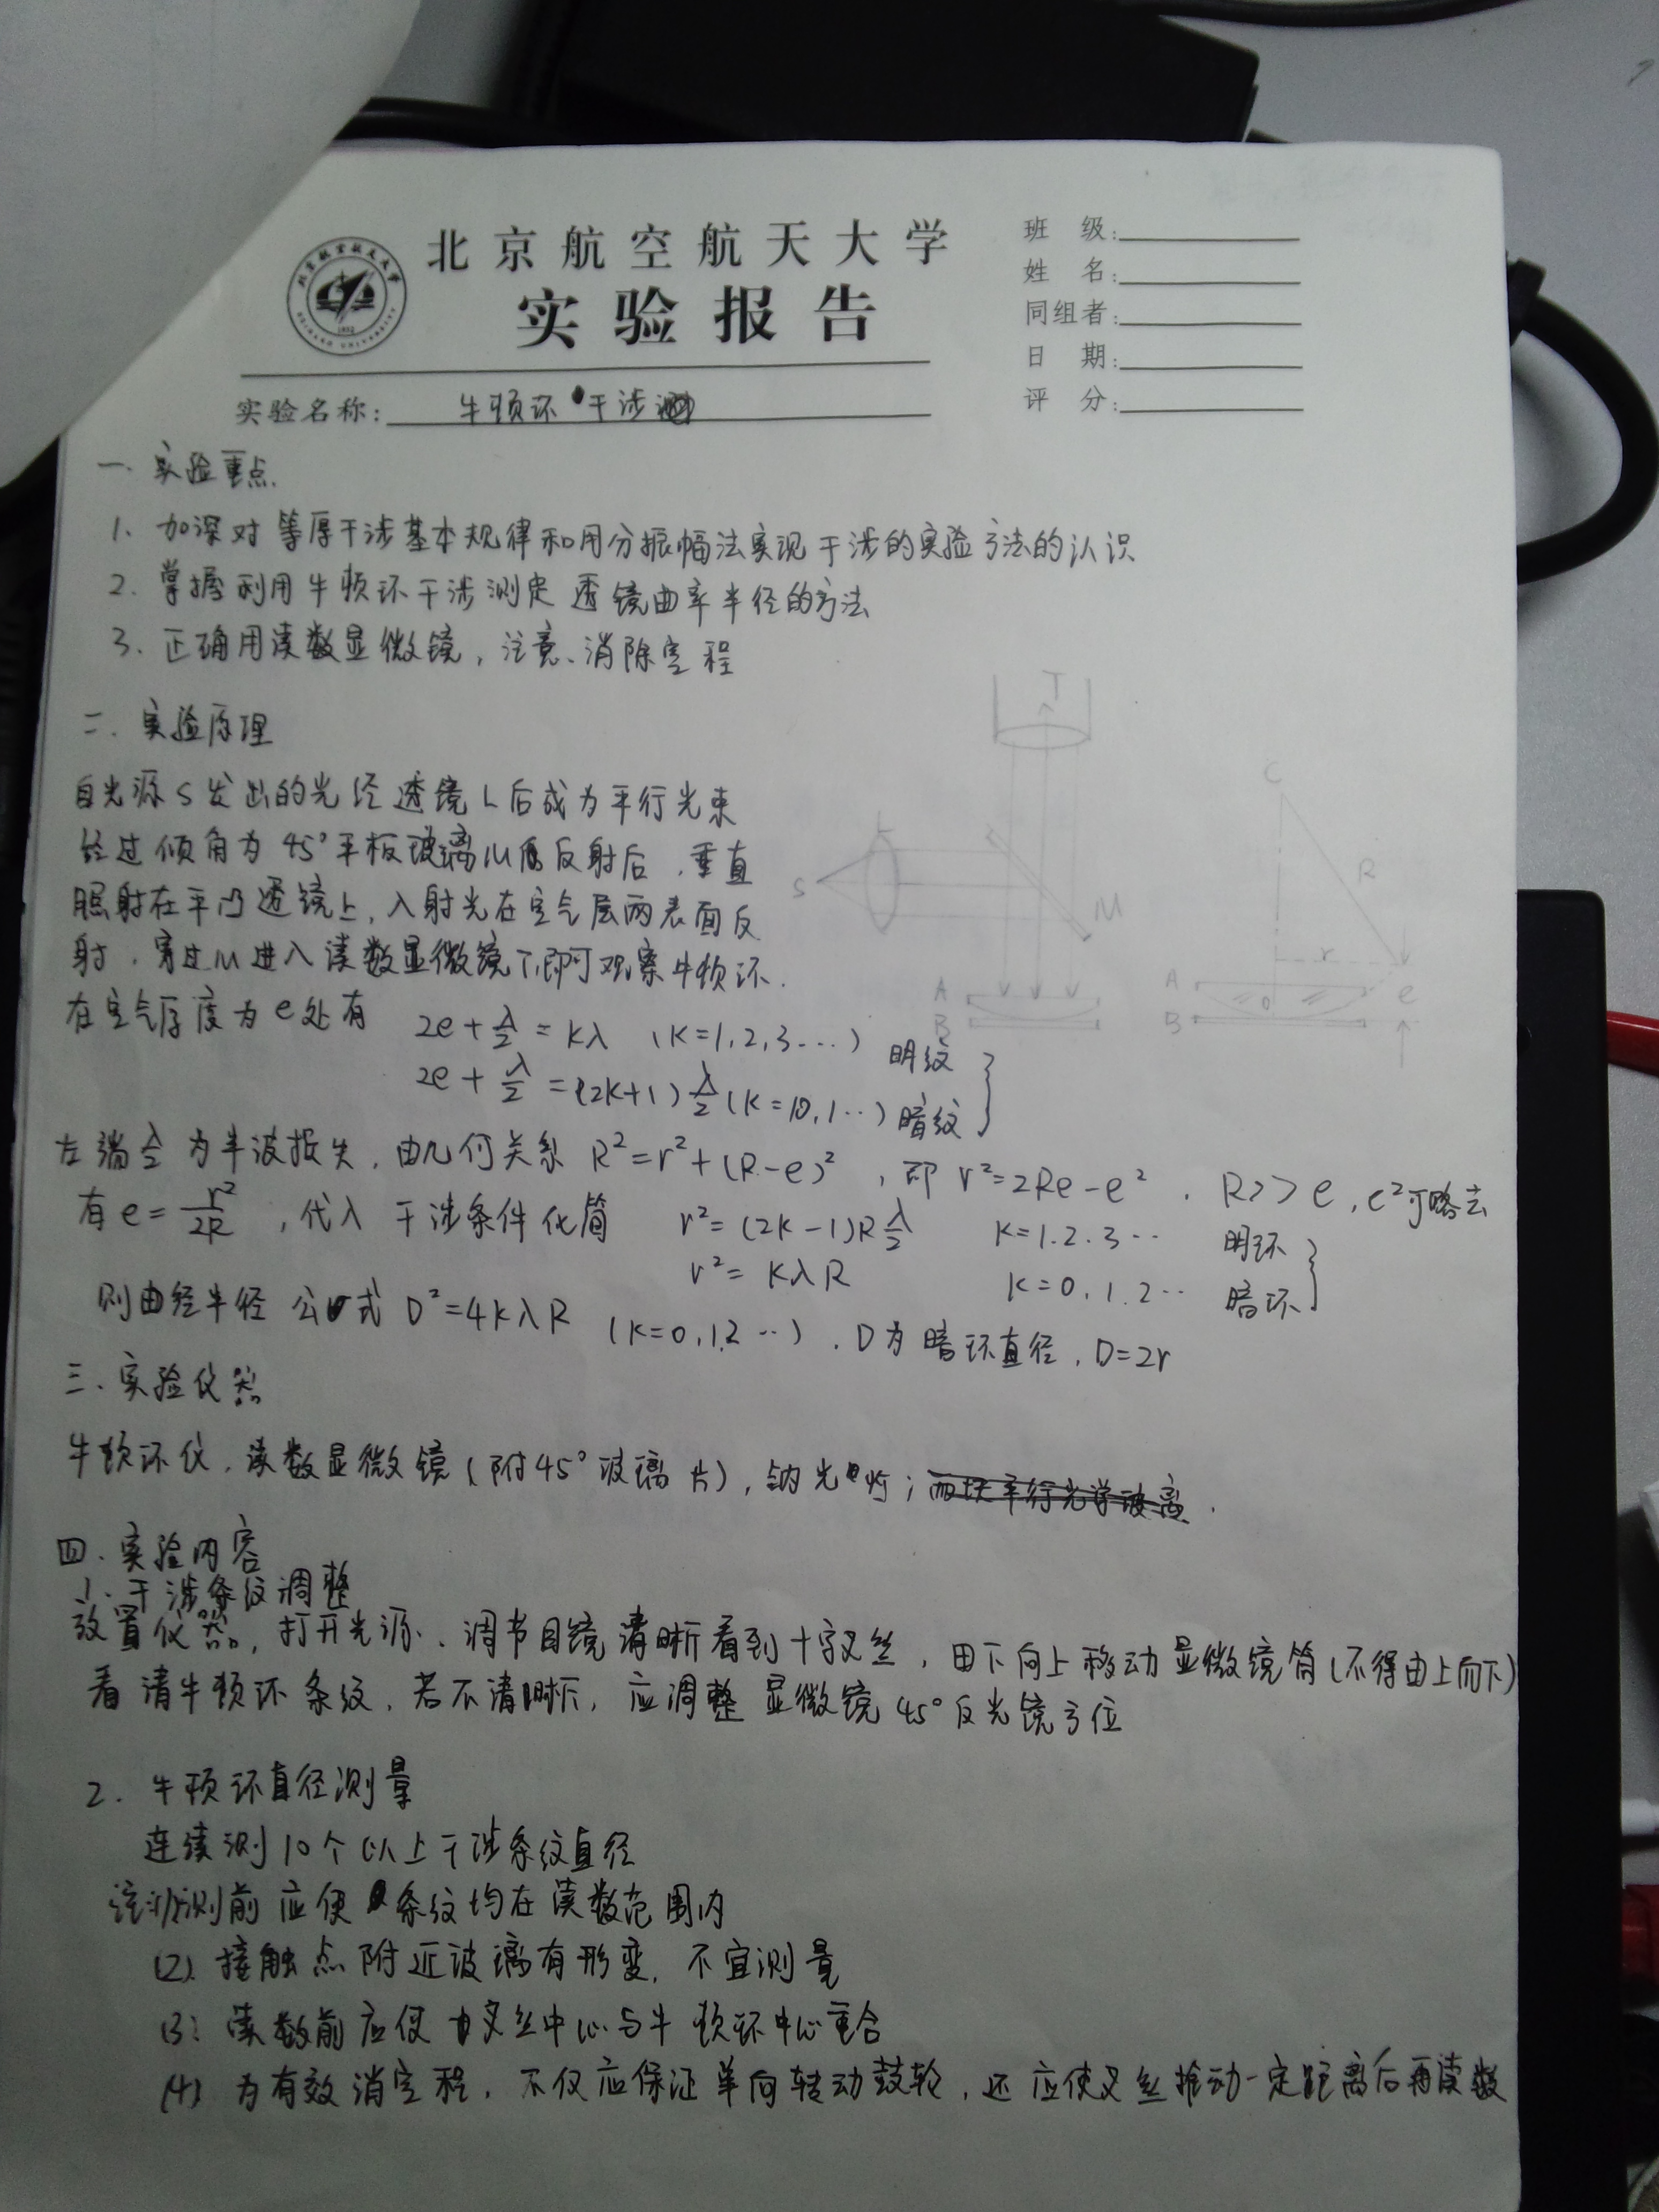 北京航空航天大学
实验报告
班 级:
姓 名:
同组者:
日 期:
评 分:
实验名称: 牛顿环干涉
一. 实验重点
1. 加深对等厚干涉基本规律和用分振幅法实现干涉的实验方法的认识
2. 掌握利用牛顿环干涉测定透镜曲率半径的方法
3. 正确用读数显微镜, 注意、消除空程
二. 实验原理
自光源S发出的光经透镜L后成为平行光束
经过倾角为45°平板玻璃M反射后, 垂直
照射在平凸透镜上, 入射光在空气层两表面反
射, 穿过M进入读数显微镜T, 即可观察牛顿环.
在空气厚度为e处有 2e+λ/2=Kλ (K=1,2,3…) 明纹
2e+λ/2=(2K+1)λ/2 (K=0,1…) 暗纹
左端λ/2为半波损失, 由几何关系 R²=r²+(R-e)², 即 r²=2Re-e². R>>e, e²可略去
有e=r²/2R, 代入干涉条件化简 r²=(2k-1)Rλ/2 K=1.2.3… 明环
r²=KλR K=0,1.2… 暗环
则由径半径公式 D²=4KλR (K=0,1,2…). D为暗环直径, D=2r
T
C
L
S
M
R
r
A
B
A
B
O
e
三. 实验仪器
牛顿环仪, 读数显微镜(附45°玻璃片), 钠光灯; 两块平行光学玻璃.
四. 实验内容
1. 干涉条纹调整
放置仪器, 打开光源. 调节目镜清晰看到十字叉丝, 由下向上移动显微镜筒(不得由上而下)
看清牛顿环条纹, 若不清晰, 应调整显微镜45°反光镜方位
2. 牛顿环直径测量
连续测10个以上干涉条纹直径
测前应使条纹均在读数范围内
(2) 接触点附近玻璃有形变, 不宜测量
(3) 读数前应使叉丝中心与牛顿环中心重合
(4) 为有效消空程, 不仅应保证单向转动鼓轮, 还应使叉丝推动一定距离后再读数